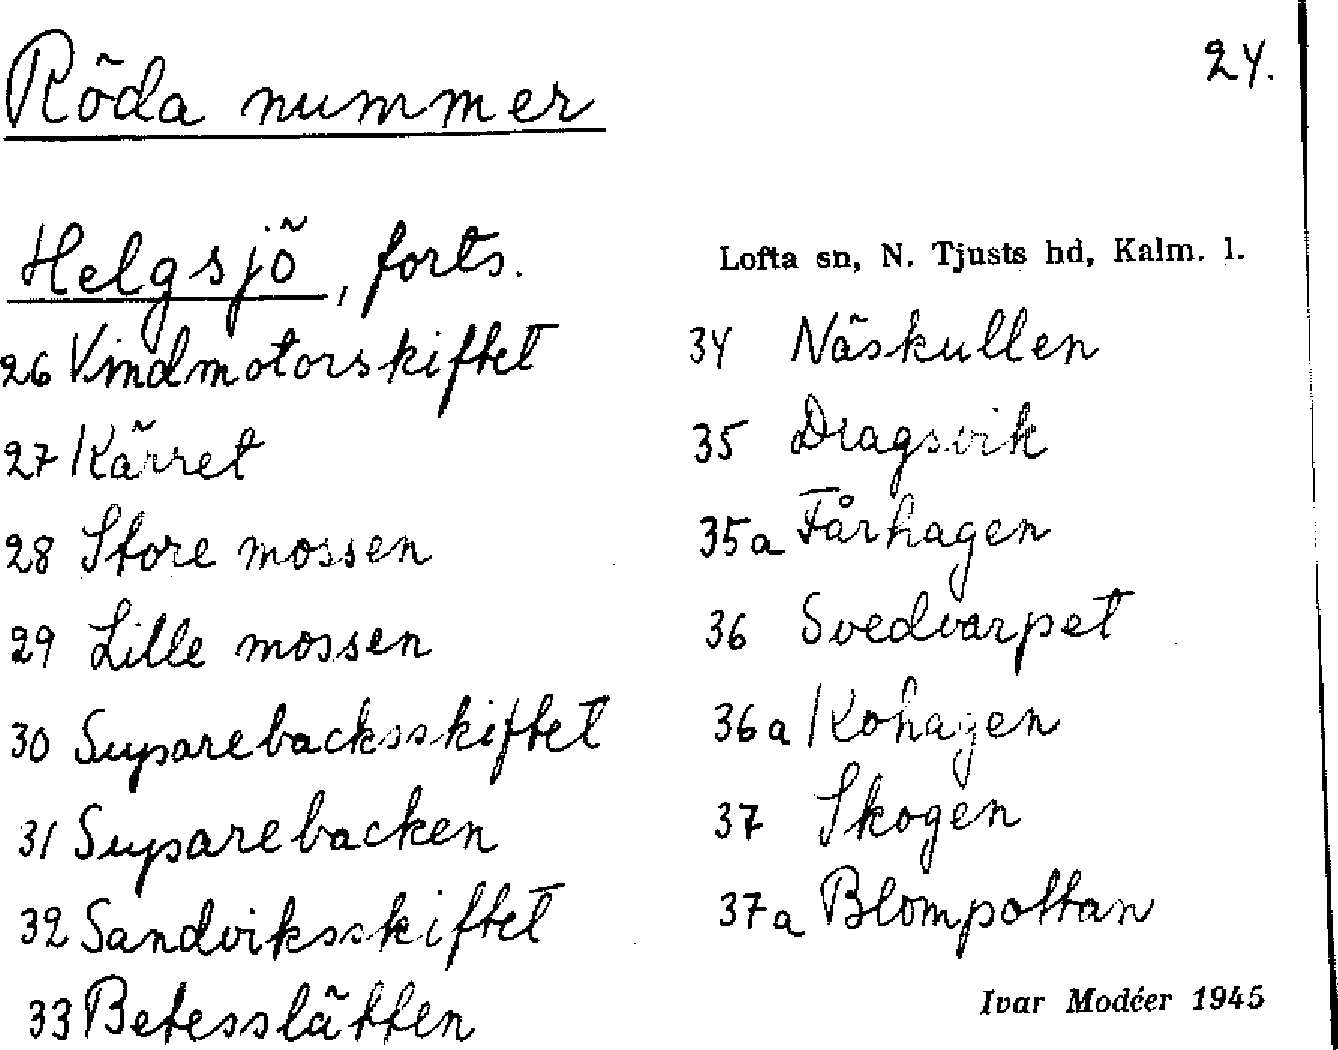 Röda nummer
24.
Helgsjö, forts.
Lofta sn, N. Tjusts hd, Kalm. l.
26 Vindmotorskiftet
27 Kärret
28 Store mossen
29 Lille mossen
30 Suparebacksskiftet
31 Suparebacken
32 Sandviksskiftet
33 Betesslätten
34 Näskullen
35 Dragsvik
35a Fårhagen
36 Svedvarpet
36a Kohagen
37 Skogen
37a Blompottan
Ivar Modéer 1945